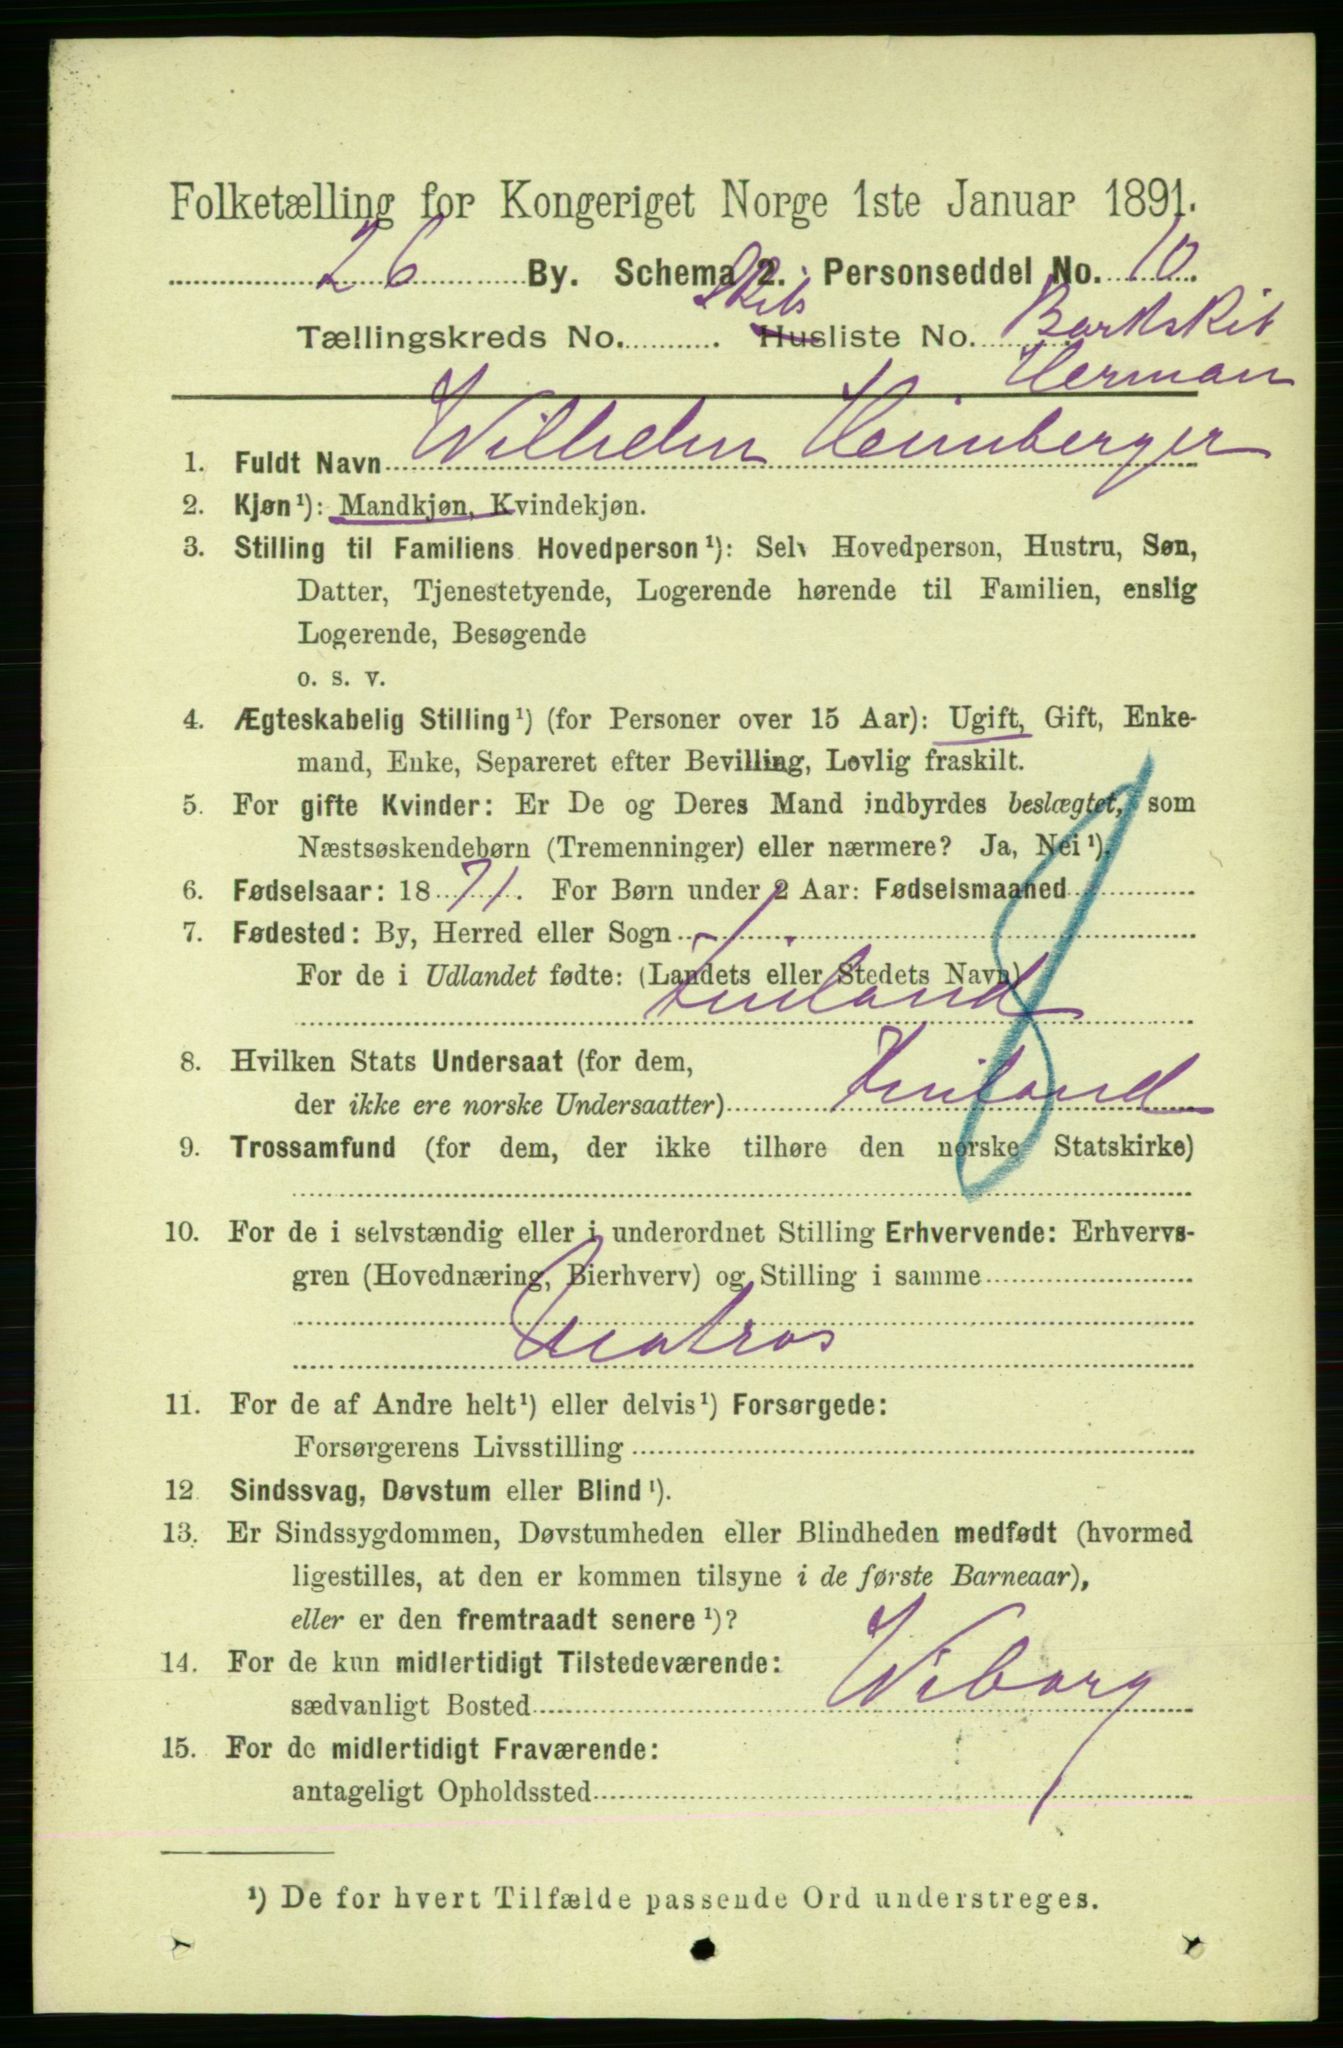 Folketælling for Kongeriget Norge 1ste Januar 1891.
26 By. Schema 2. Personseddel No. 10.
Tællingskreds No. Skibs Husliste No. Barkskib
Herman
1. Fuldt Navn Wilhelm Heimberger
2. Kjøn¹): Mandkjøn, Kvindekjøn.
3. Stilling til Familiens Hovedperson¹): Selv Hovedperson, Hustru, Søn,
Datter, Tjenestetyende, Logerende hørende til Familien, enslig
Logerende, Besøgende
o. s. v.
4. Ægteskabelig Stilling¹) (for Personer over 15 Aar): Ugift, Gift, Enke-
mand, Enke, Separeret efter Bevilling, Lovlig fraskilt.
5. For gifte Kvinder: Er De og Deres Mand indbyrdes beslægtet, som
Næstsøskendebørn (Tremenninger) eller nærmere? Ja, Nei¹).
6. Fødselsaar: 1871. For Børn under 2 Aar: Fødselsmaaned
7. Fødested: By, Herred eller Sogn
For de i Udlandet fødte: (Landets eller Stedets Navn)
Finland
8. Hvilken Stats Undersaat (for dem,
der ikke ere norske Undersaatter) Finland
9. Trossamfund (for dem, der ikke tilhøre den norske Statskirke)
10. For de i selvstændig eller i underordnet Stilling Erhvervende: Erhvervs-
gren (Hovednæring, Bierhverv) og Stilling i samme
Matros
11. For de af Andre helt¹) eller delvis¹) Forsørgede:
Forsørgerens Livsstilling
12. Sindssvag, Døvstum eller Blind¹).
13. Er Sindssygdommen, Døvstumheden eller Blindheden medfødt (hvormed
ligestilles, at den er kommen tilsyne i de første Barneaar),
eller er den fremtraadt senere¹)?
14. For de kun midlertidigt Tilstedeværende:
sædvanligt Bosted Wiborg
15. For de midlertidigt Fraværende:
antageligt Opholdssted
¹) De for hvert Tilfælde passende Ord understreges.